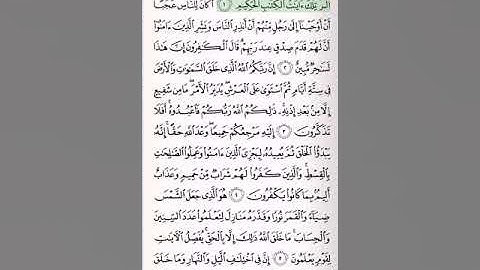 الٓر تِلْكَ ءَايَٰتُ ٱلْكِتَٰبِ ٱلْحَكِيمِ ١ أَكَانَ لِلنَّاسِ عَجَبًا
أَنْ أَوْحَيْنَآ إِلَىٰ رَجُلٍ مِّنْهُمْ أَنْ أَنذِرِ ٱلنَّاسَ وَبَشِّرِ ٱلَّذِينَ ءَامَنُوٓا۟
أَنَّ لَهُمْ قَدَمَ صِدْقٍ عِندَ رَبِّهِمْ قَالَ ٱلْكَٰفِرُونَ إِنَّ هَٰذَا
لَسَٰحِرٌ مُّبِينٌ ٢ إِنَّ رَبَّكُمُ ٱللَّهُ ٱلَّذِى خَلَقَ ٱلسَّمَٰوَٰتِ وَٱلْأَرْضَ
فِى سِتَّةِ أَيَّامٍ ثُمَّ ٱسْتَوَىٰ عَلَى ٱلْعَرْشِ يُدَبِّرُ ٱلْأَمْرَ مَا مِن شَفِيعٍ
إِلَّا مِنۢ بَعْدِ إِذْنِهِۦ ذَٰلِكُمُ ٱللَّهُ رَبُّكُمْ فَٱعْبُدُوهُ أَفَلَا
تَذَكَّرُونَ ٣ إِلَيْهِ مَرْجِعُكُمْ جَمِيعًا وَعْدَ ٱللَّهِ حَقًّا إِنَّهُۥ
يَبْدَؤُا۟ ٱلْخَلْقَ ثُمَّ يُعِيدُهُۥ لِيَجْزِىَ ٱلَّذِينَ ءَامَنُوا۟ وَعَمِلُوا۟ ٱلصَّٰلِحَٰتِ
بِٱلْقِسْطِ وَٱلَّذِينَ كَفَرُوا۟ لَهُمْ شَرَابٌ مِّنْ حَمِيمٍ وَعَذَابٌ
أَلِيمٌۢ بِمَا كَانُوا۟ يَكْفُرُونَ ٤ هُوَ ٱلَّذِى جَعَلَ ٱلشَّمْسَ
ضِيَآءً وَٱلْقَمَرَ نُورًا وَقَدَّرَهُۥ مَنَازِلَ لِتَعْلَمُوا۟ عَدَدَ ٱلسِّنِينَ
وَٱلْحِسَابَ مَا خَلَقَ ٱللَّهُ ذَٰلِكَ إِلَّا بِٱلْحَقِّ يُفَصِّلُ ٱلْءَايَٰتِ
لِقَوْمٍ يَعْلَمُونَ ٥ إِنَّ فِى ٱخْتِلَٰفِ ٱلَّيْلِ وَٱلنَّهَارِ وَمَا خَلَقَ